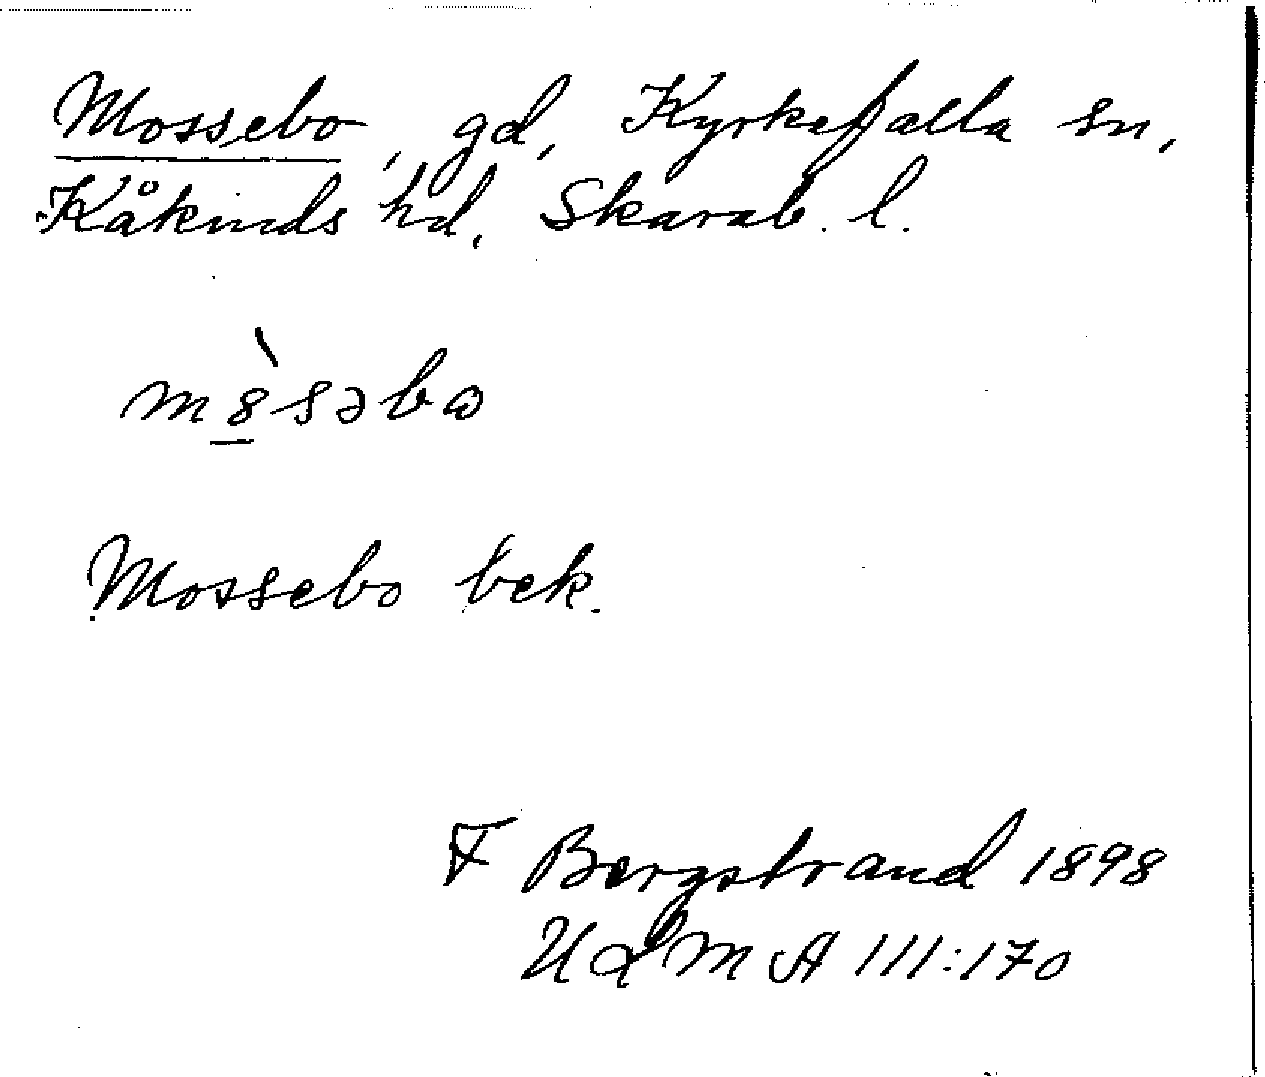 Mossebo, gd, Kyrkefalla sn,
Kåkinds hd, Skarab. l.
m8̲̀səbω
Mossebo bek.
F Bergstrand 1898
ULMA 111:170